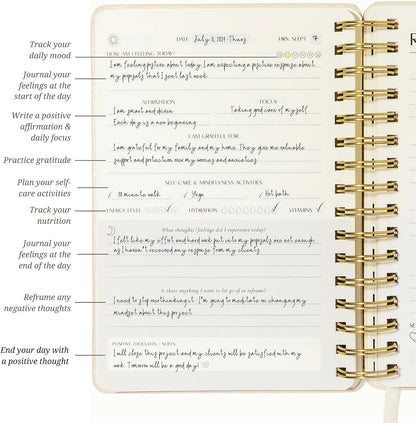 DATE July 11, 2024 - Thurs.
HRS. SLEPT 7
Track your
daily mood
HOW AM I FEELING TODAY?
I am feeling positive about today. I am expecting a positive response about
my proposals that I sent last week.
Journal your
feelings at the
start of the day
AFFIRMATION
FOCUS
I am smart and driven.
Taking good care of myself
Each day is a new beginning
Write a positive
affirmation &
daily focus
I AM GRATEFUL FOR
I am grateful for my family and my home. They give me valuable
support and protection over my worries and anxieties.
Practice gratitude
SELF-CARE & MINDFULNESS ACTIVITIES
30 minute walk
Yoga
Hot bath
Plan your self-
care activities
ENERGY LEVEL
HYDRATION
VITAMINS
Track your
nutrition
What thoughts/feelings did I experience today?
I felt like my effort and hard work put into my proposals are not enough
as I haven't received any response from my clients.
Journal your
feelings at the
end of the day
Is there anything I want to let go of or reframe?
I need to stop overthinking it. I'm going to meditate on changing my
mindset about this project.
Reframe any
negative thoughts
POSITIVE THOUGHTS / NOTES
I will close this project and my clients will be satisfied with my
work. Tomorrow will be a good day!
End your day with
a positive thought